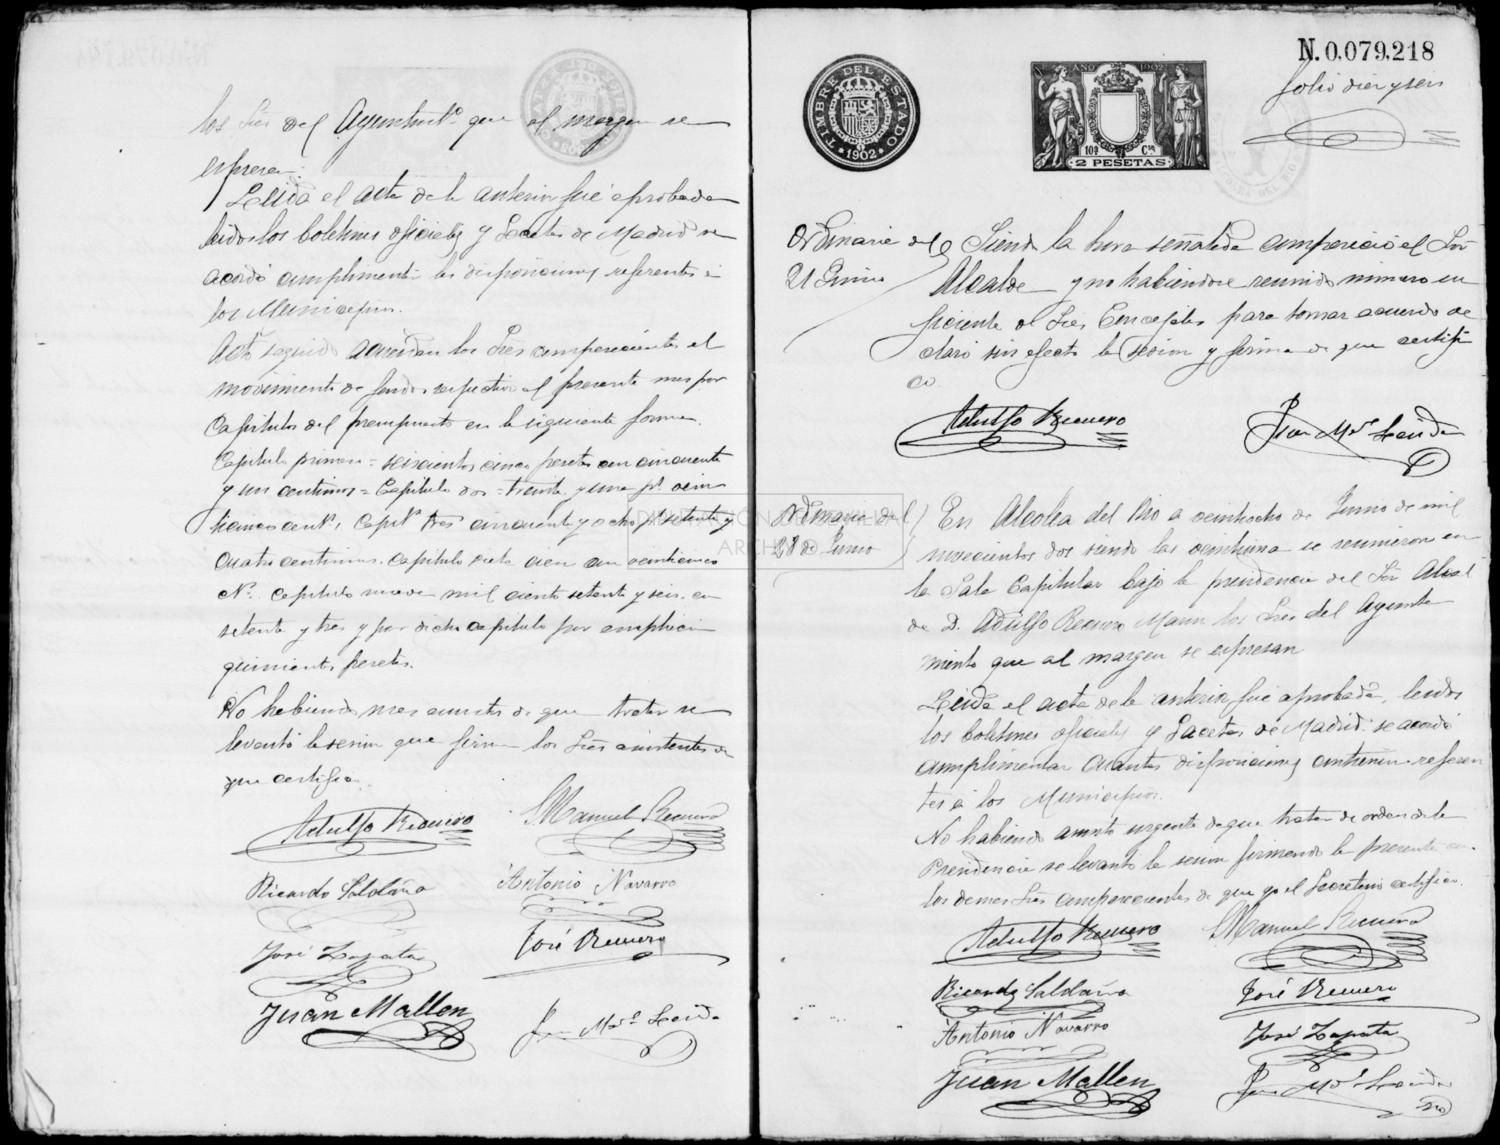 los Sres del Ayuntmto que al margen se
espresan.
Leida el acta de la anterior fué aprobada
leidos los boletines oficiales y Gacetas de Madrid se
acordó cumplimentar las disposiciones referentes a
los Municipios.
Acto seguido acuerdan los Sres comparecientes el
movimiento de fondos respectivo al presente mes por
Capitulos del presupuesto en la siguiente forma.
Capitulo primero = seiscientas cinco pesetas con cincuenta
y un centimos = Capitulo dos = treinta y una pts vein
ticinco cents, Capitº tres cincuenta y ocho pts setenta y
cuatro centimos. Capitulo siete cien con veinticinco
Capitulo nueve mil ciento setenta y seis con
setenta y tres y por dicho capitulo por ampliacion
quinientas pesetas.
No habiendo mas asuntos de que tratar se
levantó la sesion que firman los Sres asistentes de
que certifico.
Adulfo Requero Manuel Requera
Ricardo Saldaña Antonio Navarro
José Zapata José Romero
Juan Mallen Juan Mª
N.0,079,218
folio diez y seis
TIMBRE DEL ESTADO
1902
AÑO 1902
10ª Cse
2 PESETAS
Ordinaria del
21 Junio
Siendo la hora señalada compareció el Sor
Alcalde y no habiendose reunido número su
ficiente de Sres Concejales para tomar acuerdo de
claró sin efecto la sesion y firma de que certifi
co.
Adulfo Requero Juan Mª
Ordinaria del
28 de Junio
En Alcolea del Rio a veintiocho de Junio de mil
novecientos dos siendo las veintiuna se reunieron en
la Sala Capitular bajo la presidencia del Sor Alcal
de D. Adulfo Marin los Sres del Ayunta
miento que al margen se espresan
Leida el acta de la anterior fué aprobada, leidos
los boletines oficiales y Gacetas de Madrid se acordó
cumplimentar cuantas disposiciones contienen referen
tes á los Municipios.
No habiendo asunto urgente de que tratar de orden de la
Presidencia se levantó la sesion firmando la presente con
los demas Sres comparecientes de que yo el Secretario certifico.
Adulfo Requero Manuel Requera
Ricardo Saldaña José Romero
Antonio Navarro José Zapata
Juan Mallen Juan Mª
Srio
DIPUTACIÓN DE SEVILLA
ARCHIVO